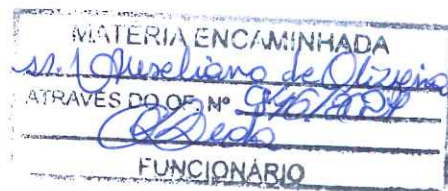 MATÉRIA ENCAMINHADA
sr. Aureliano de Oliveira
ATRAVÉS DO OF. Nº
FUNCIONÁRIO